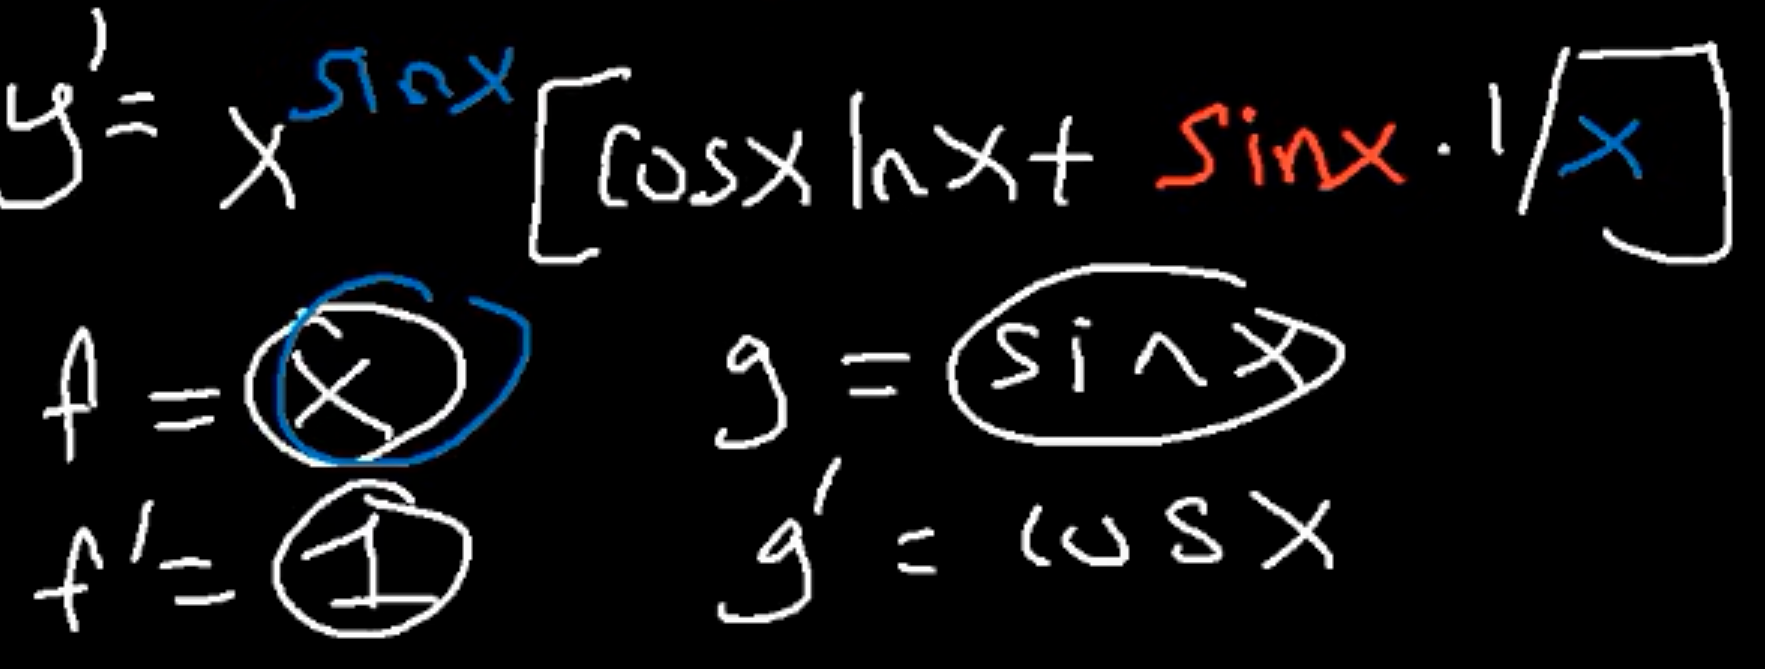 y' = x^sinx [cosx lnx + sinx · 1/x]
f = x g = sinx
f' = 1 g' = cosx